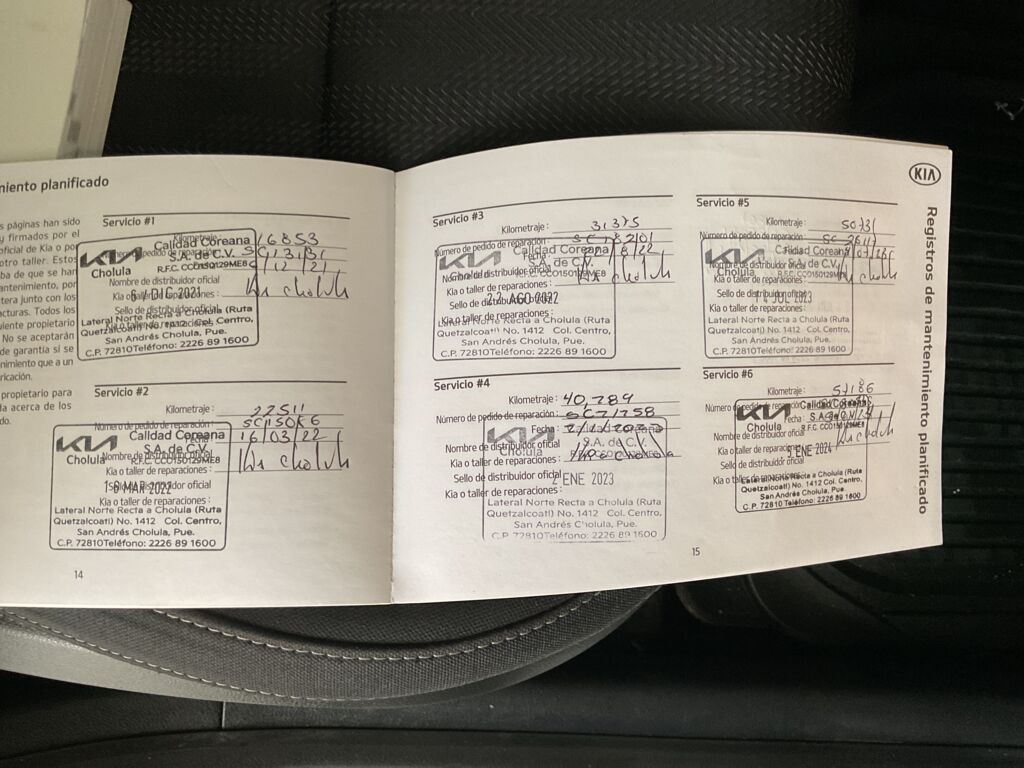 miento planificado
s páginas han sido
y firmados por el
oficial de Kia o por
otro taller. Estos
ba de que se han
antenimiento, por
tera junto con los
acturas. Todos los
uiente propietario
No se aceptarán
de garantía si se
nimiento que a un
ricación.
propietario para
da acerca de los
do.
Servicio #1
Kilometraje: 16853
Calidad Coreana
S.A. de C.V.
KIA
Cholula
R.F.C. CCO150129ME8
Nombre de distribuidor oficial Kia Cholula
Kia o taller de reparaciones :
6 DIC 2021
Sello de distribuidor oficial
Lateral Norte Recta a Cholula (Ruta
Quetzalcoatl) No. 1412 Col. Centro,
San Andrés Cholula, Pue.
C.P. 72810 Teléfono: 2226 89 1600
Servicio #2
Kilometraje : 22511
Número de pedido de reparación : SC15086
KIA Calidad Coreana
S.A. de C.V.
Fecha 16/03/22
Cholula R.F.C. CCO150129ME8
Nombre de distribuidor oficial Kia Cholula
Kia o taller de reparaciones :
MAR 2022
Sello de distribuidor oficial
Kia o taller de reparaciones :
Lateral Norte Recta a Cholula (Ruta
Quetzalcoatl) No. 1412 Col. Centro,
San Andrés Cholula, Pue.
C.P. 72810 Teléfono: 2226 89 1600
14
Servicio #3
Kilometraje : 31,375
Número de pedido de reparación : SC18201
KIA Calidad Coreana
S.A. de C.V.
Cholula R.F.C. CCO150129ME8
Nombre de distribuidor oficial Kia Cholula
Kia o taller de reparaciones :
22 AGO 2022
Sello de distribuidor oficial
Kia o taller de reparaciones :
Lateral Norte Recta a Cholula (Ruta
Quetzalcoatl) No. 1412 Col. Centro,
San Andrés Cholula, Pue.
C.P. 72810 Teléfono: 2226 89 1600
Servicio #4
Kilometraje : 40,784
Número de pedido de reparación : SC21258
Fecha :
KIA
S.A. de C.V.
Cholula
Nombre de distribuidor oficial Kia Cholula
Kia o taller de reparaciones :
Sello de distribuidor oficial 2 ENE 2023
Kia o taller de reparaciones :
Lateral Norte Recta a Cholula (Ruta
Quetzalcoatl) No. 1412 Col. Centro,
San Andrés Cholula, Pue.
C.P. 72810 Teléfono: 2226 89 1600
Servicio #5
Kilometraje :
Número de pedido de reparación :
KIA Calidad Coreana
S.A. de C.V.
Cholula R.F.C. CCO150129ME8
Nombre de distribuidor oficial
Kia o taller de reparaciones :
Sello de distribuidor oficial 14 JUL 2023
Kia o taller de reparaciones :
Lateral Norte Recta a Cholula (Ruta
Quetzalcoatl) No. 1412 Col. Centro,
San Andrés Cholula, Pue.
C.P. 72810 Teléfono: 2226 89 1600
Servicio #6
Kilometraje : 57186
Número de pedido de reparación :
KIA Calidad Coreana
S.A. de C.V.
Cholula R.F.C. CCO150129ME8
Nombre de distribuidor oficial Kia Cholula
Kia o taller de reparaciones :
ENE 2024
Sello de distribuidor oficial
Lateral Norte Recta a Cholula (Ruta
Quetzalcoatl) No. 1412 Col. Centro,
San Andrés Cholula, Pue.
C.P. 72810 Teléfono: 2226 89 1600
15
KIA
Registros de mantenimiento planificado